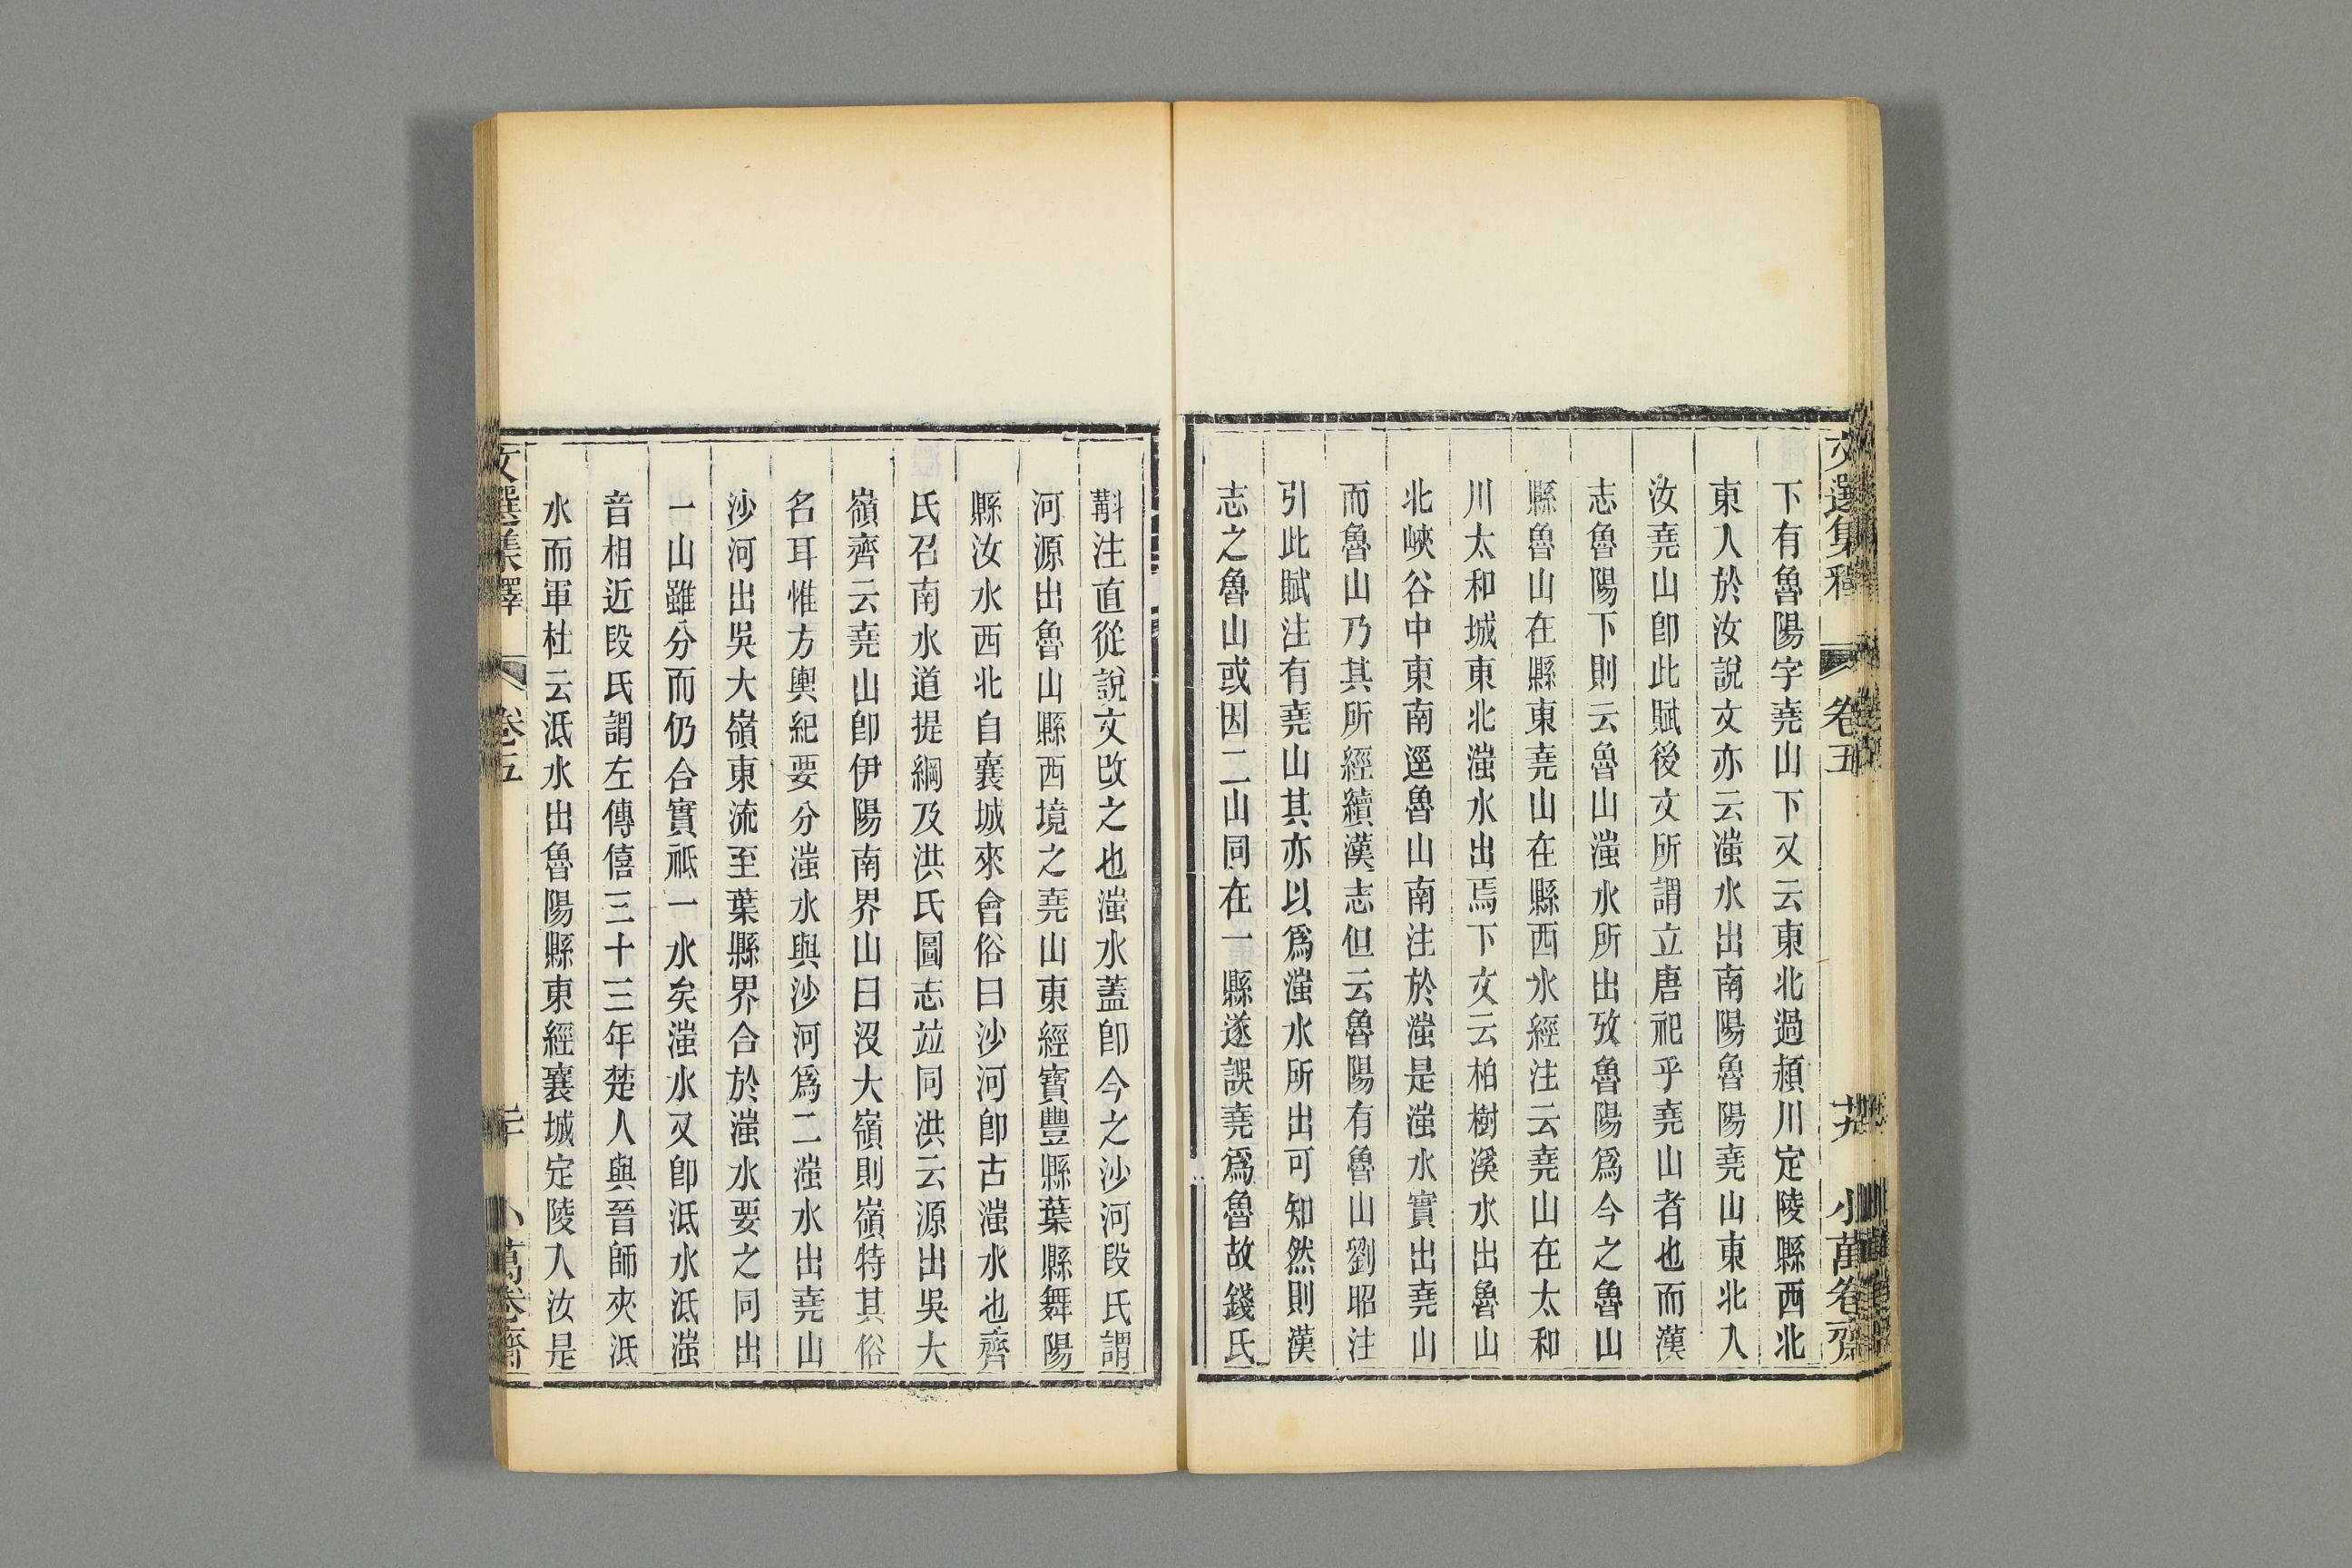 文選集釋 卷五 十九 小萬卷齋
下有魯陽字堯山下又云東北過潁川定陵縣西北
東入於汝說文亦云滍水出南陽魯陽堯山東北入
汝堯山卽此賦後文所謂立唐祀乎堯山者也而漢
志魯陽下則云魯山滍水所出攷魯陽爲今之魯山
縣魯山在縣東堯山在縣西水經注云堯山在太和
川太和城東北滍水出焉下文云柏樹溪水出魯山
北峽谷中東南逕魯山南注於滍是滍水實出堯山
而魯山乃其所經續漢志但云魯陽有魯山劉昭注
引此賦注有堯山其亦以爲滍水所出可知然則漢
志之魯山或因二山同在一縣遂誤堯爲魯故錢氏
斠注直從說文改之也滍水蓋卽今之沙河段氏謂
河源出魯山縣西境之堯山東經寶豐縣葉縣舞陽
縣汝水西北自襄城來會俗曰沙河卽古滍水也齊
氏召南水道提綱及洪氏圖志竝同洪云源出吳大
嶺齊云堯山卽伊陽南界山曰沒大嶺則嶺特其俗
名耳惟方輿紀要分滍水與沙河爲二滍水出堯山
沙河出吳大嶺東流至葉縣界合於滍水要之同出
一山雖分而仍合實祗一水矣滍水又卽泜水泜滍
音相近段氏謂左傳僖三十三年楚人與晉師夾泜
水而軍杜云泜水出魯陽縣東經襄城定陵入汝是
文選集釋 卷五 二十 小萬卷齋